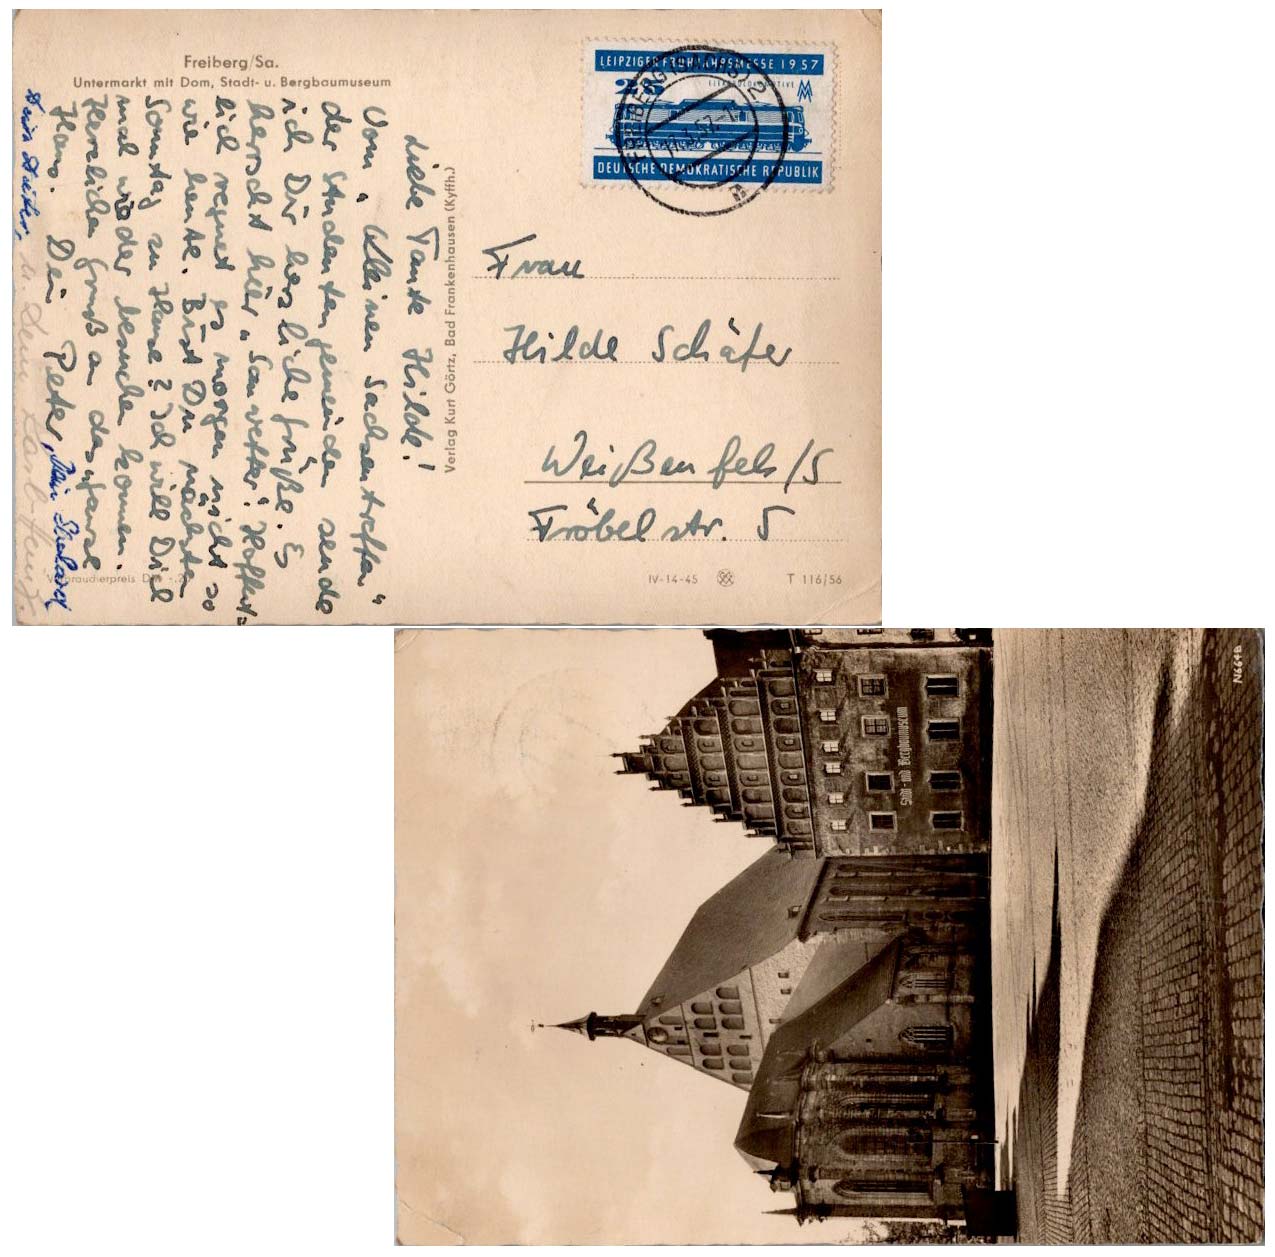 Freiberg/Sa.
Untermarkt mit Dom, Stadt- u. Bergbaumuseum
Liebe Tante Hilde!
Vom „Kleinen Sachsentreffen“
der Studentengemeinden sende
ich Dir herzliche Grüße. Es
herrscht hier „Sauwetter“. Hoffent=
lich regnet es morgen nicht so
wie heute. Bist Du nächsten
Sonntag zu Hause? Ich will Dich
mal wieder besuchen kommen.
Herzlichen Gruß an das ganze
Haus. Dein Peter,
Verbraucherpreis DM -.20
Verlag Kurt Görtz, Bad Frankenhausen (Kyffh.)
LEIPZIGER FRÜHJAHRSMESSE 1957
25
ELEKTROLOKOMOTIVE
MM
DEUTSCHE DEMOKRATISCHE REPUBLIK
FREIBERG (SACHS) 2
Frau
Hilde Schäfer
Weißenfels/S
Fröbelstr. 5
IV-14-45
T 116/56
Stadt- und Bergbaumuseum
N664B